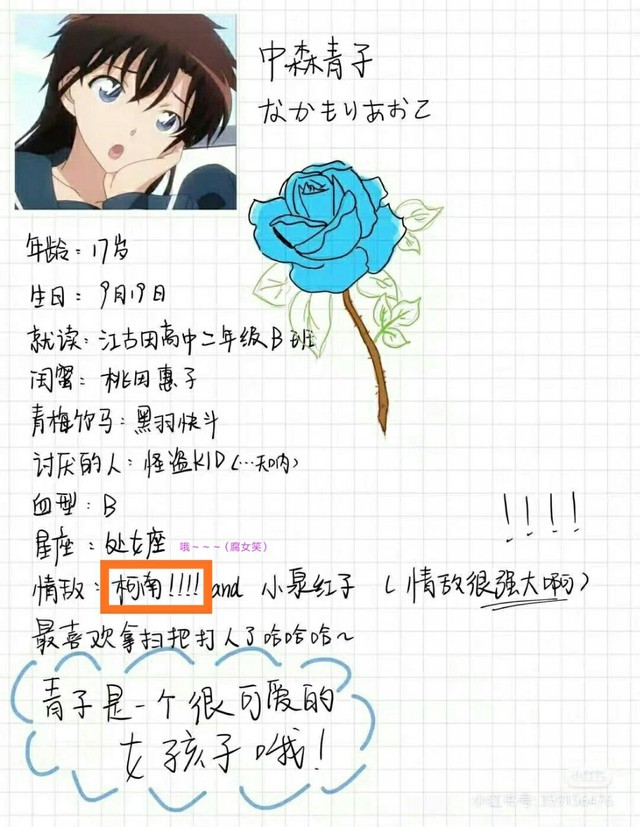 中森青子
なかもりあおこ
年龄：17岁
生日：9月19日
就读：江古田高中二年级B班
闺蜜：桃田惠子
青梅竹马：黑羽快斗
讨厌的人：怪盗KID（…天呐）
血型：B
星座：处女座 哦～～～（腐女笑）
!!!!
情敌：柯南!!!! and 小泉红子（情敌很强大啊）
最喜欢拿扫把打人了哈哈哈～
青子是一个很可爱的
女孩子哦！
小红书
小红书号：